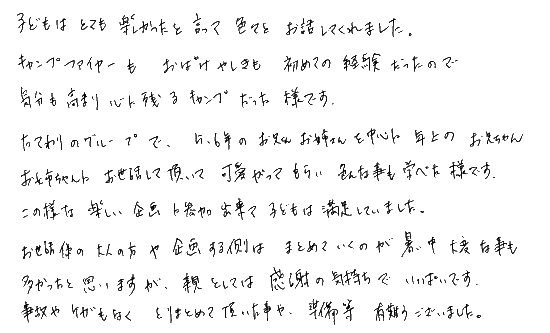 子どもは とても 楽しかったと 言って 色々と お話してくれました。
キャンプファイヤーも おばけやしきも 初めての 経験だったので
気分も 高まり 心に残る キャンプ だった 様です。
たてわりのグループで、5、6年の お兄さん お姉さんを中心に 年上の お兄ちゃん
お姉ちゃんに お世話して頂いて 可愛がってもらい 色んな事も 学べた 様です。
この様な 楽しい 企画に参加出来て 子どもは 満足していました。
お世話係の 大人の方 や 企画する側は まとめていくのが 暑い中 大変な事も
多かったと 思いますが、親としては 感謝の気持ちで いっぱいです。
事故や ケガもなく とりまとめて 頂いた事や、準備等 有難うございました。